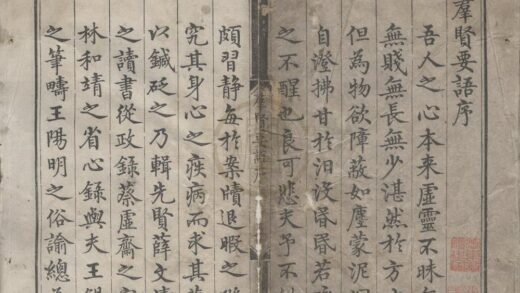 羣賢要語序
吾人之心本来虚靈不昧無
無賤無長無少湛然於方
但為物欲障蔽如塵蒙泥
自澄拂甘於汨没昬昬若
之不醒也良可悲夫予不
頗習静每於案牘退暇之
究其身心之疾病而求其
以鍼砭之乃輯先賢薛文
之讀書從政錄蔡虚齋之
林和靖之省心錄與夫王
之筆疇王陽明之俗諭總